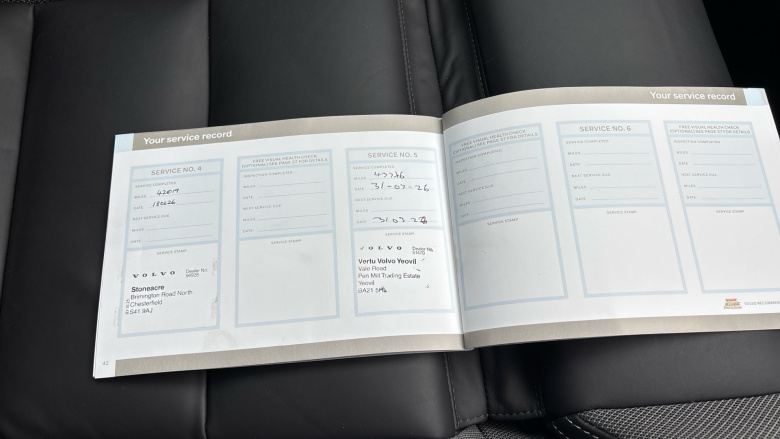 Your service record
SERVICE NO. 4
SERVICE COMPLETED
MILES 42019
DATE
NEXT SERVICE DUE
MILES
DATE
SERVICE STAMP
VOLVO Dealer No
Stoneacre
Brimington Road North
Chesterfield
S41 9AJ
42
FREE VISUAL HEALTH CHECK
(OPTIONAL) SEE PAGE 37 FOR DETAILS
INSPECTION COMPLETED
MILES
DATE
NEXT SERVICE DUE
MILES
DATE
SERVICE STAMP
SERVICE NO. 5
SERVICE COMPLETED
MILES
DATE 31-03-26
NEXT SERVICE DUE
MILES
DATE
SERVICE STAMP
VOLVO Dealer No
Vertu Volvo Yeovil
Vale Road
Pen Mill Trading Estate
Yeovil
BA21
Your service record
FREE VISUAL HEALTH CHECK
(OPTIONAL) SEE PAGE 37 FOR DETAILS
INSPECTION COMPLETED
MILES
DATE
NEXT SERVICE DUE
MILES
DATE
SERVICE STAMP
SERVICE NO. 6
SERVICE COMPLETED
MILES
DATE
NEXT SERVICE DUE
MILES
DATE
SERVICE STAMP
FREE VISUAL HEALTH CHECK
(OPTIONAL) SEE PAGE 37 FOR DETAILS
INSPECTION COMPLETED
MILES
DATE
NEXT SERVICE DUE
MILES
DATE
SERVICE STAMP
VOLVO RECOMMENDS